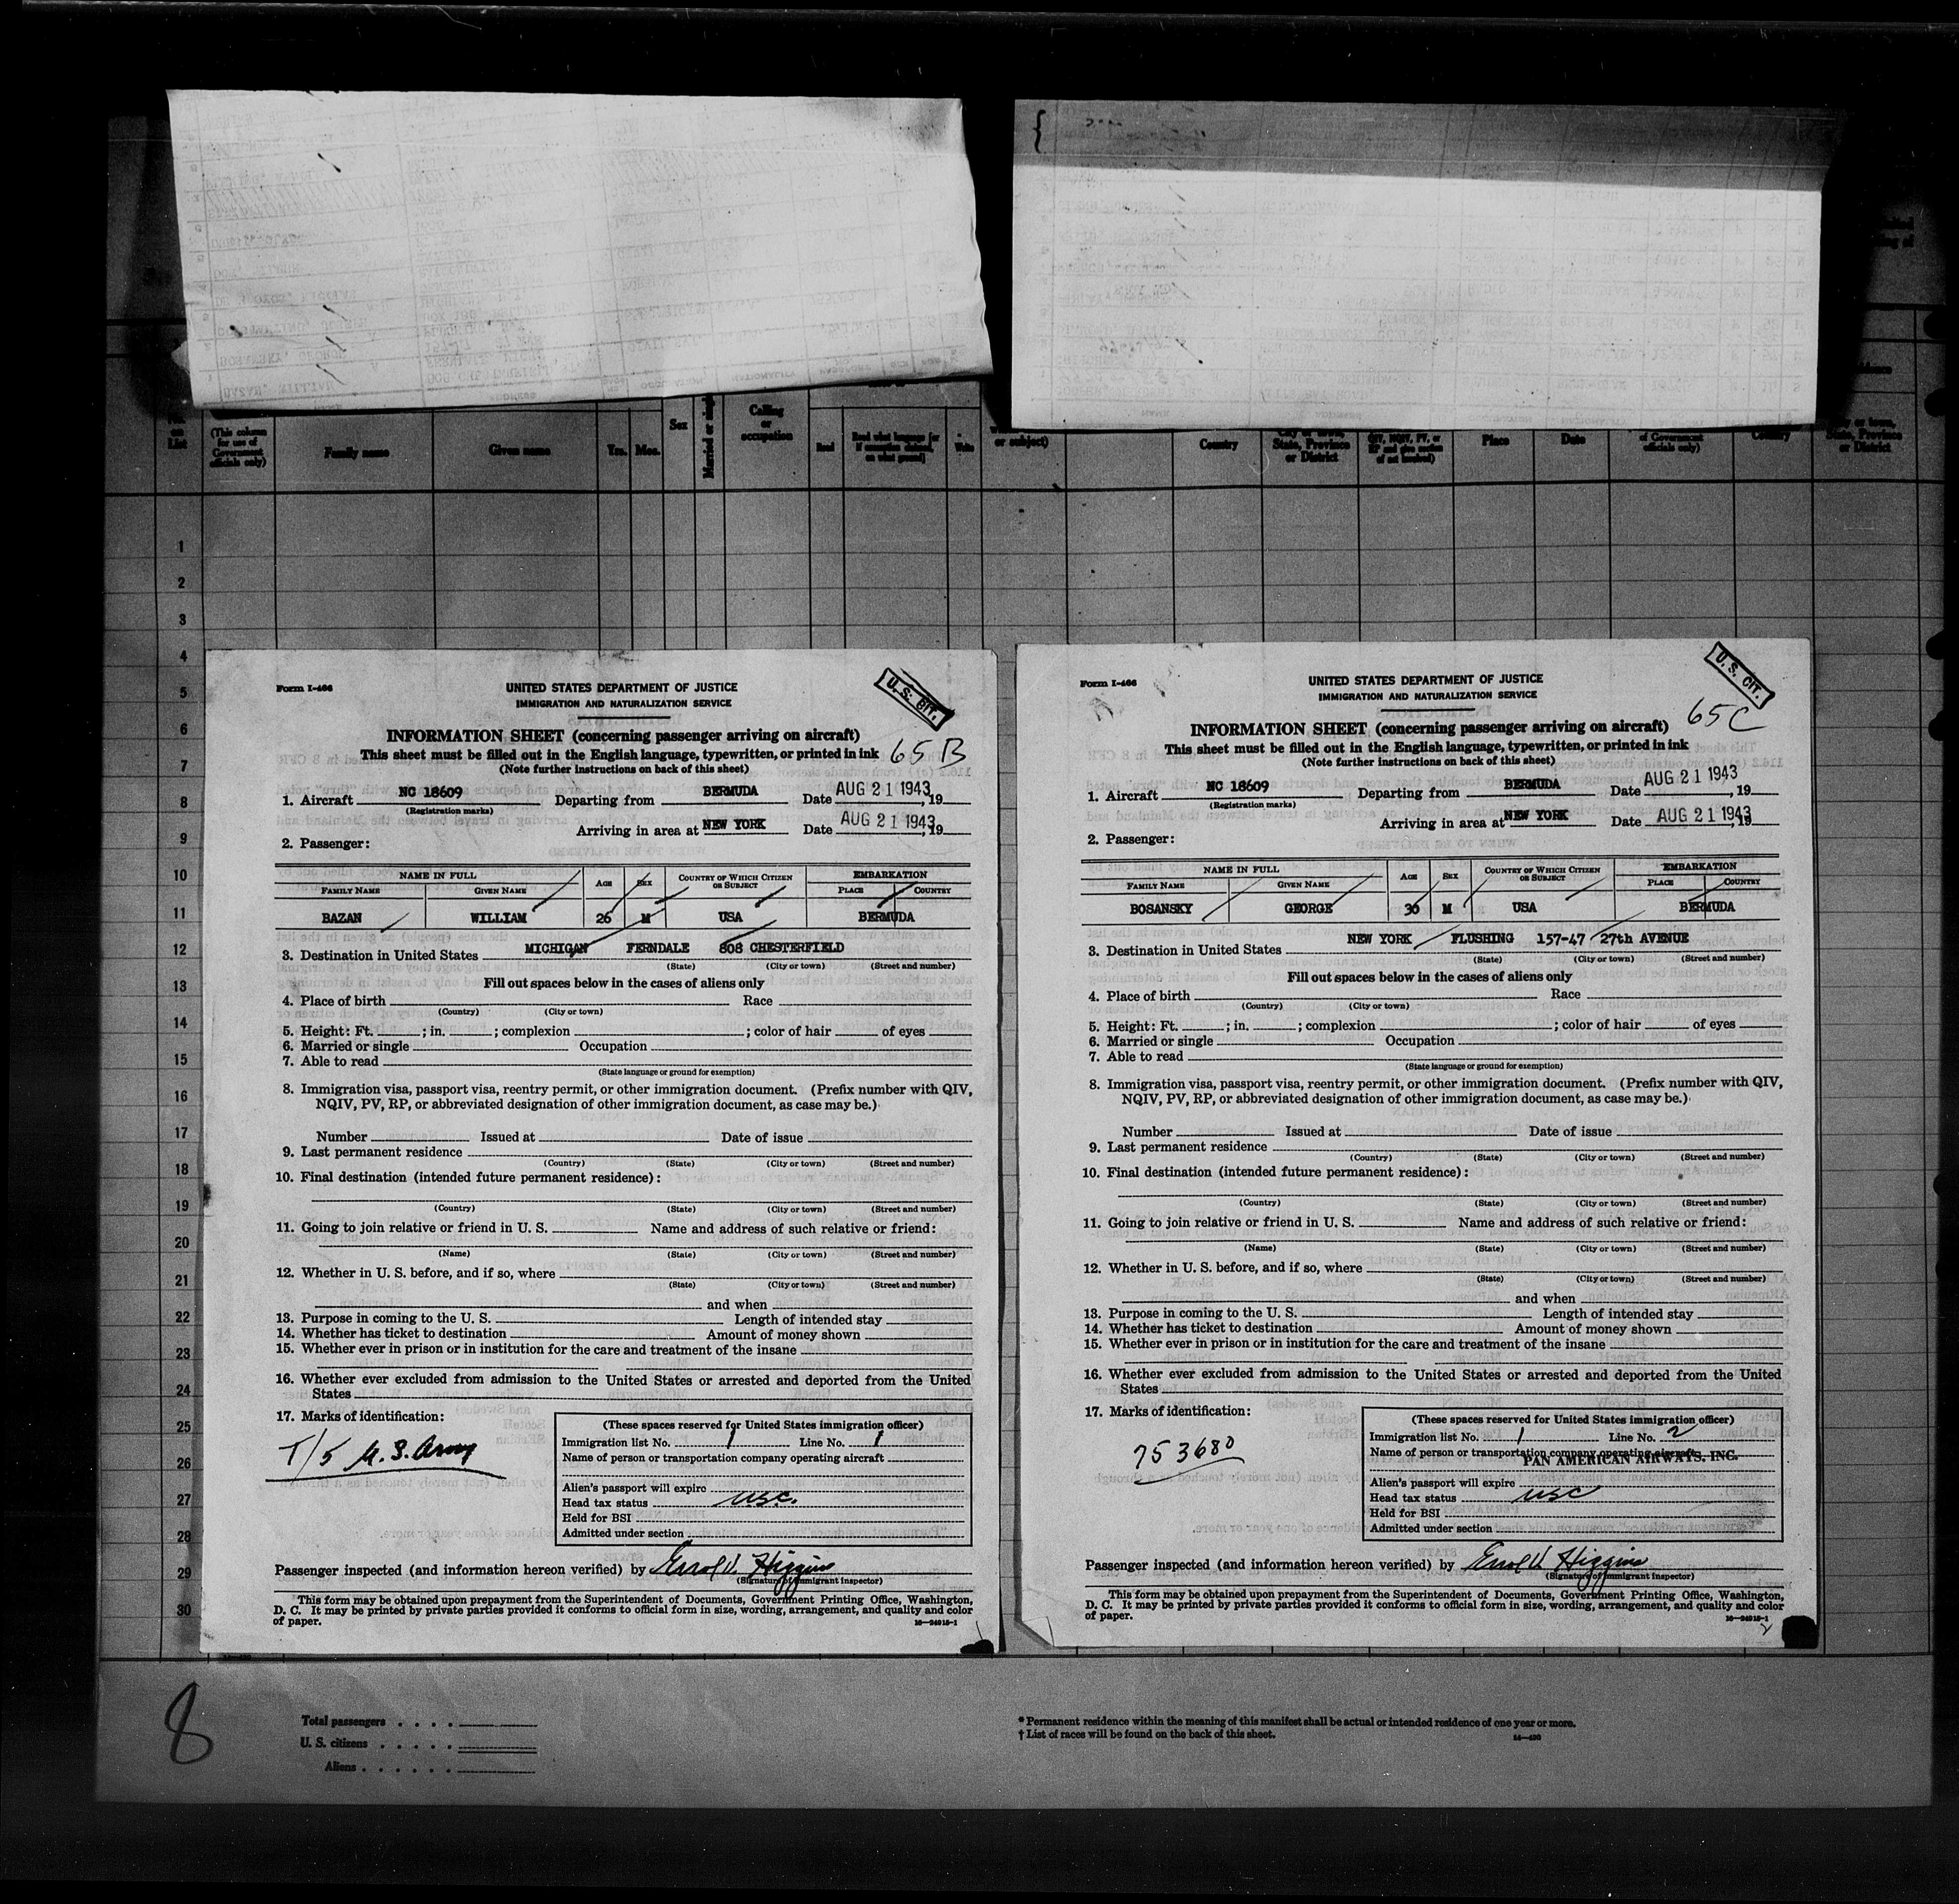 No. on List
(This column for use of Government officials only)
Family name
Given name
Yrs.
Mos.
Sex
Married or single
Calling or occupation
Read
Read what language [or if exemption claimed, on what ground]
Write
or subject)
Country
State, Province or District
Place
Date
of Government officials only)
Country
State, Province or District
1
2
3
4
5
6
7
8
9
10
11
12
13
14
15
16
17
18
19
20
21
22
23
24
25
26
27
28
29
30
Form I-466
UNITED STATES DEPARTMENT OF JUSTICE
IMMIGRATION AND NATURALIZATION SERVICE
U. S. CIT.
INFORMATION SHEET (concerning passenger arriving on aircraft)
This sheet must be filled out in the English language, typewritten, or printed in ink 65 B
(Note further instructions on back of this sheet)
1. Aircraft NC 18609 Departing from BERMUDA Date AUG 21 1943, 19
(Registration marks)
Arriving in area at NEW YORK Date AUG 21 1943, 19
2. Passenger:
NAME IN FULL AGE SEX COUNTRY OF WHICH CITIZEN OR SUBJECT EMBARKATION
FAMILY NAME GIVEN NAME PLACE COUNTRY
BAZAN WILLIAM 26 M USA BERMUDA
3. Destination in United States MICHIGAN FERNDALE 808 CHESTERFIELD
(State) (City or town) (Street and number)
Fill out spaces below in the cases of aliens only
4. Place of birth Race
(Country) (City or town)
5. Height: Ft. ; in. ; complexion ; color of hair of eyes
6. Married or single Occupation
7. Able to read
(State language or ground for exemption)
8. Immigration visa, passport visa, reentry permit, or other immigration document. (Prefix number with QIV,
NQIV, PV, RP, or abbreviated designation of other immigration document, as case may be.)
Number Issued at Date of issue
9. Last permanent residence
(Country) (State) (City or town) (Street and number)
10. Final destination (intended future permanent residence):
(Country) (State) (City or town) (Street and number)
11. Going to join relative or friend in U. S. Name and address of such relative or friend:
(Name) (State) (City or town) (Street and number)
12. Whether in U. S. before, and if so, where
(State) (City or town) (Street and number)
and when
13. Purpose in coming to the U. S. Length of intended stay
14. Whether has ticket to destination Amount of money shown
15. Whether ever in prison or in institution for the care and treatment of the insane
16. Whether ever excluded from admission to the United States or arrested and deported from the United
States
17. Marks of identification:
T/5 U.S. Army
(These spaces reserved for United States immigration officer)
Immigration list No. 1 Line No. 1
Name of person or transportation company operating aircraft
Alien's passport will expire
Head tax status USC.
Held for BSI
Admitted under section
Passenger inspected (and information hereon verified) by Errol V. Higgins
(Signature of immigrant inspector)
This form may be obtained upon prepayment from the Superintendent of Documents, Government Printing Office, Washington,
D. C. It may be printed by private parties provided it conforms to official form in size, wording, arrangement, and quality and color
of paper. 16—24915-1
Form I-466
UNITED STATES DEPARTMENT OF JUSTICE
IMMIGRATION AND NATURALIZATION SERVICE
U. S. CIT.
65C
INFORMATION SHEET (concerning passenger arriving on aircraft)
This sheet must be filled out in the English language, typewritten, or printed in ink
(Note further instructions on back of this sheet)
1. Aircraft NC 18609 Departing from BERMUDA Date AUG 21 1943, 19
(Registration marks)
Arriving in area at NEW YORK Date AUG 21 1943, 19
2. Passenger:
NAME IN FULL AGE SEX COUNTRY OF WHICH CITIZEN OR SUBJECT EMBARKATION
FAMILY NAME GIVEN NAME PLACE COUNTRY
BOSANSKY GEORGE 30 M USA BERMUDA
3. Destination in United States NEW YORK FLUSHING 157-47 27th AVENUE
(State) (City or town) (Street and number)
Fill out spaces below in the cases of aliens only
4. Place of birth Race
(Country) (City or town)
5. Height: Ft. ; in. ; complexion ; color of hair of eyes
6. Married or single Occupation
7. Able to read
(State language or ground for exemption)
8. Immigration visa, passport visa, reentry permit, or other immigration document. (Prefix number with QIV,
NQIV, PV, RP, or abbreviated designation of other immigration document, as case may be.)
Number Issued at Date of issue
9. Last permanent residence
(Country) (State) (City or town) (Street and number)
10. Final destination (intended future permanent residence):
(Country) (State) (City or town) (Street and number)
11. Going to join relative or friend in U. S. Name and address of such relative or friend:
(Name) (State) (City or town) (Street and number)
12. Whether in U. S. before, and if so, where
(State) (City or town) (Street and number)
and when
13. Purpose in coming to the U. S. Length of intended stay
14. Whether has ticket to destination Amount of money shown
15. Whether ever in prison or in institution for the care and treatment of the insane
16. Whether ever excluded from admission to the United States or arrested and deported from the United
States
17. Marks of identification:
753680
(These spaces reserved for United States immigration officer)
Immigration list No. 1 Line No. 2
Name of person or transportation company operating aircraft
PAN AMERICAN AIRWAYS, INC.
Alien's passport will expire
Head tax status USC
Held for BSI
Admitted under section
Passenger inspected (and information hereon verified) by Errol V. Higgins
(Signature of immigrant inspector)
This form may be obtained upon prepayment from the Superintendent of Documents, Government Printing Office, Washington,
D. C. It may be printed by private parties provided it conforms to official form in size, wording, arrangement, and quality and color
of paper. 16—24915-1
2
8
Total passengers
U. S. citizens
Aliens
* Permanent residence within the meaning of this manifest shall be actual or intended residence of one year or more.
† List of races will be found on the back of this sheet.